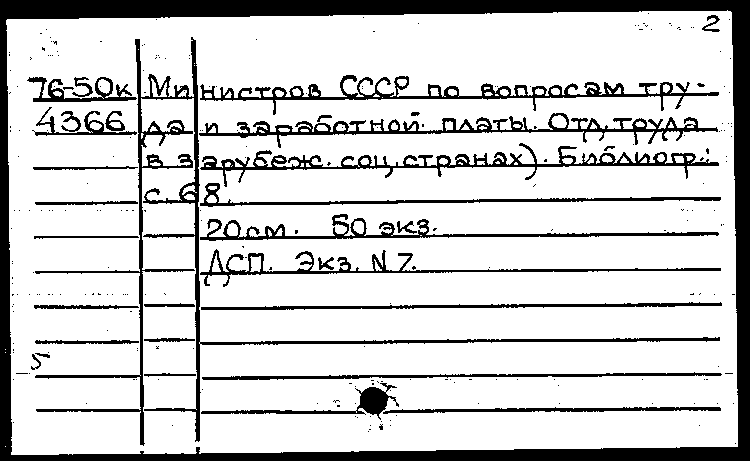 2
76-50к Министров СССР по вопросам тру-
4366 да и заработной платы. Отд. труда
в зарубеж. соц. странах). Библиогр.:
с. 68.
20см. 50 экз.
ДСП. Экз. N 7.
5